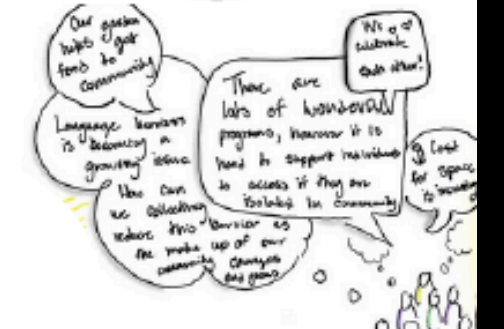 Our garden
helps get
food to
community
We
celebrate
each other!
Language barriers
is becoming a
growing issue
How can
we collectively
reduce this barrier as
the make up of our
community changes
and grows
There are
lots of wonderful
programs, however it is
hard to support individuals
to access if they are
isolated in community
Cost
for space
is increasing